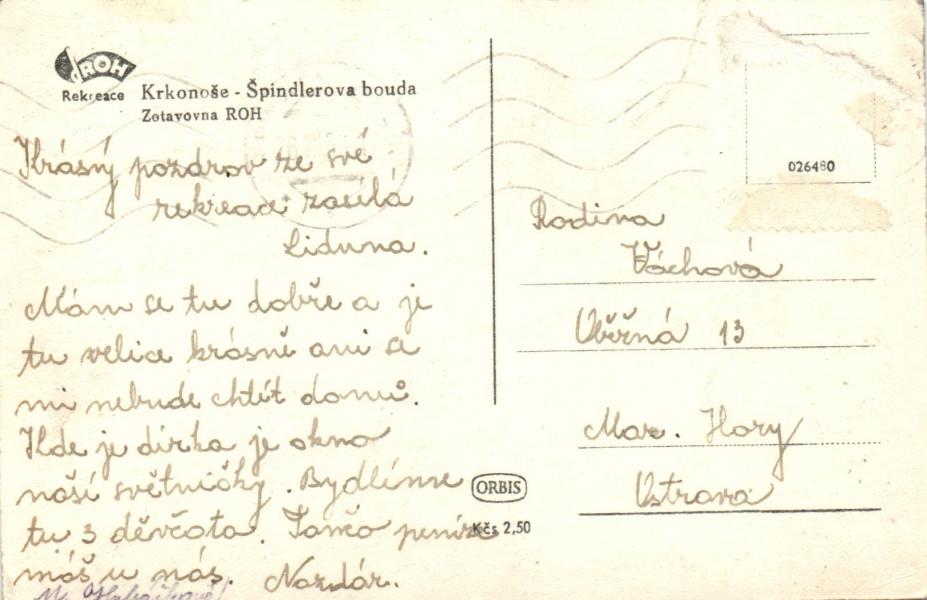 ROH
Rekreace
Krkonoše - Špindlerova bouda
Zotavovna ROH
Krásný pozdrov ze své
rekreace zasílá
Liduna.
Mám se tu dobře a je
tu velice krásně ani se
mi nebude chtít domů.
Kde je dirka je okno
naší světničky. Bydlíme
tu 3 děvčata. Tončo peníze
máš u nás. Nazdár.
026480
Rodina
Váchová
Oběžná 13
Mar. Hory
Ostrava
ORBIS
Kčs 2,50